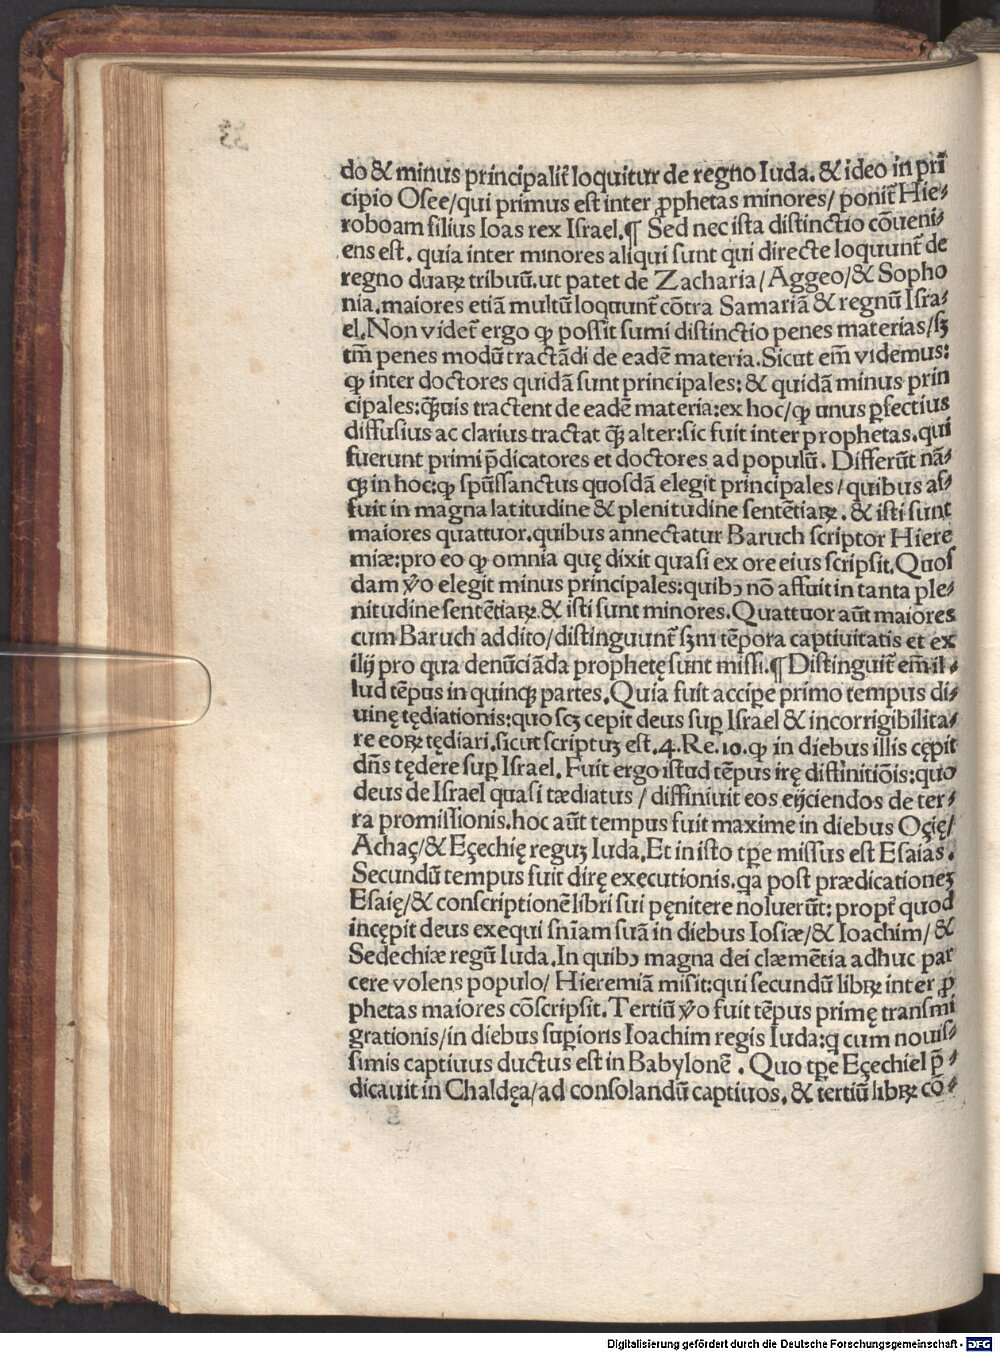 do & minus principalit̃ loquitur de regno Iuda. & ideo in pri
cipio Osee/qui primus est inter ꝓphetas minores/ ponit̃ Hie⸗
roboam filius Ioas rex Israel.¶ Sed nec ista distinctio cōueni⸗
ens est. quia inter minores aliqui sunt qui directe loquunt̃ de
regno duaꝝ tribuū.ut patet de Zacharia/Aggeo/& Sopho
nia.maiores etiā multū loquunt̃ cōtra Samariā & regnū Isra⸗
el.Non videt̃ ergo ꝙ possit sumi distinctio penes materias/sꝫ
tm̄ penes modū tractādi de eadē materia.Sicut em̄ videmus:
ꝙ inter doctores quidā sunt principales: & quidā minus prin
cipales:q̄̃uis tractent de eadē materia:ex hoc/ꝙ unus ꝑfectius
diffusius ac clarius tractat q̄̃ alter:sic fuit inter prophetas.qui
fuerunt primi p̄dicatores et doctores ad populū. Differūt nā⸗
qꝫ in hoc:ꝙ spūssanctus quosdā elegit principales/quibus af⸗
fuit in magna latitudine & plenitudine sentētiaꝝ. & isti sunt
maiores quattuor.quibus annectatur Baruch scriptor Hiere
miæ:pro eo ꝙ omnia quę dixit quasi ex ore eius scripsit.Quos
dam ṽo elegit minus principales:quibꝰ nō affuit in tanta ple⸗
nitudine sentētiaꝝ.& isti sunt minores.Quattuor aūt maiores
cum Baruch addito/distinguunt̃ sꝫm tēpora captiuitatis et ex
ilij pro qua denūciāda prophetę sunt missi.¶Distinguit̃ em̄ il⸗
lud tēpus in quinqꝫ partes.Quia fuit accipe primo tempus di⸗
uinę tędiationis:quo scꝫ cepit deus suꝑ Israel & incorrigibilita⸗
re eoꝝ tędiari.sicut scriptuꝫ est.4.Re.10.ꝙ in diebus illis cępit
dn̄s tędere suꝑ Israel. Fuit ergo istud tēpus irę diffinitiōis:quo
deus de Israel quasi tædiatus / diffiniuit eos eijciendos de ter⸗
ra promissionis.hoc aūt tempus fuit maxime in diebus Oçię/
Achaç/& Eçechię reguꝫ Iuda.Et in isto tꝑe missus est Esaias.
Secundū tempus fuit dirę executionis.qa post prædicationeꝫ
Esaię/& conscriptionē libri sui pęnitere noluerūt: propt̃ quod
incępit deus exequi sn̄iam suā in diebus Iosiæ/& Ioachim/ &
Sedechiæ regū Iuda.In quibꝰ magna dei clæmētia adhuc par
cere volens populo/ Hieremiā misit:qui secundū libꝝ inter ꝓ
phetas maiores cōscripsit.Tertiū ṽo fuit tēpus primę transmi
grationis/in diebus suꝑioris Ioachim regis Iuda:q cum nouis⸗
simis captiuus ductus est in Babylonē. Quo tꝑe Eçechiel p̄⸗
dicauit in Chaldęa/ad consolandū captiuos. & tertiū libꝝ cō⸗
Digitalisierung gefördert durch die Deutsche Forschungsgemeinschaft - DFG